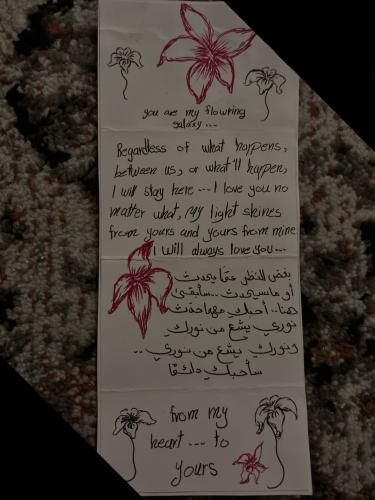 you are my flowring
galaxy...
Regardless of what happens,
between us, or what'll happen,
I will stay here --- I love you no
matter what, my light shines
from yours and yours from mine
I will always love you...
بغض النظر عمّا يحدث
أو ماسيحدث ..سأبقى
هنا.. أحبك مهما حدث
نوري يشع من نورك
ونورك يشع من نوري..
سأحبك دائمًا
from my
heart --- to
yours